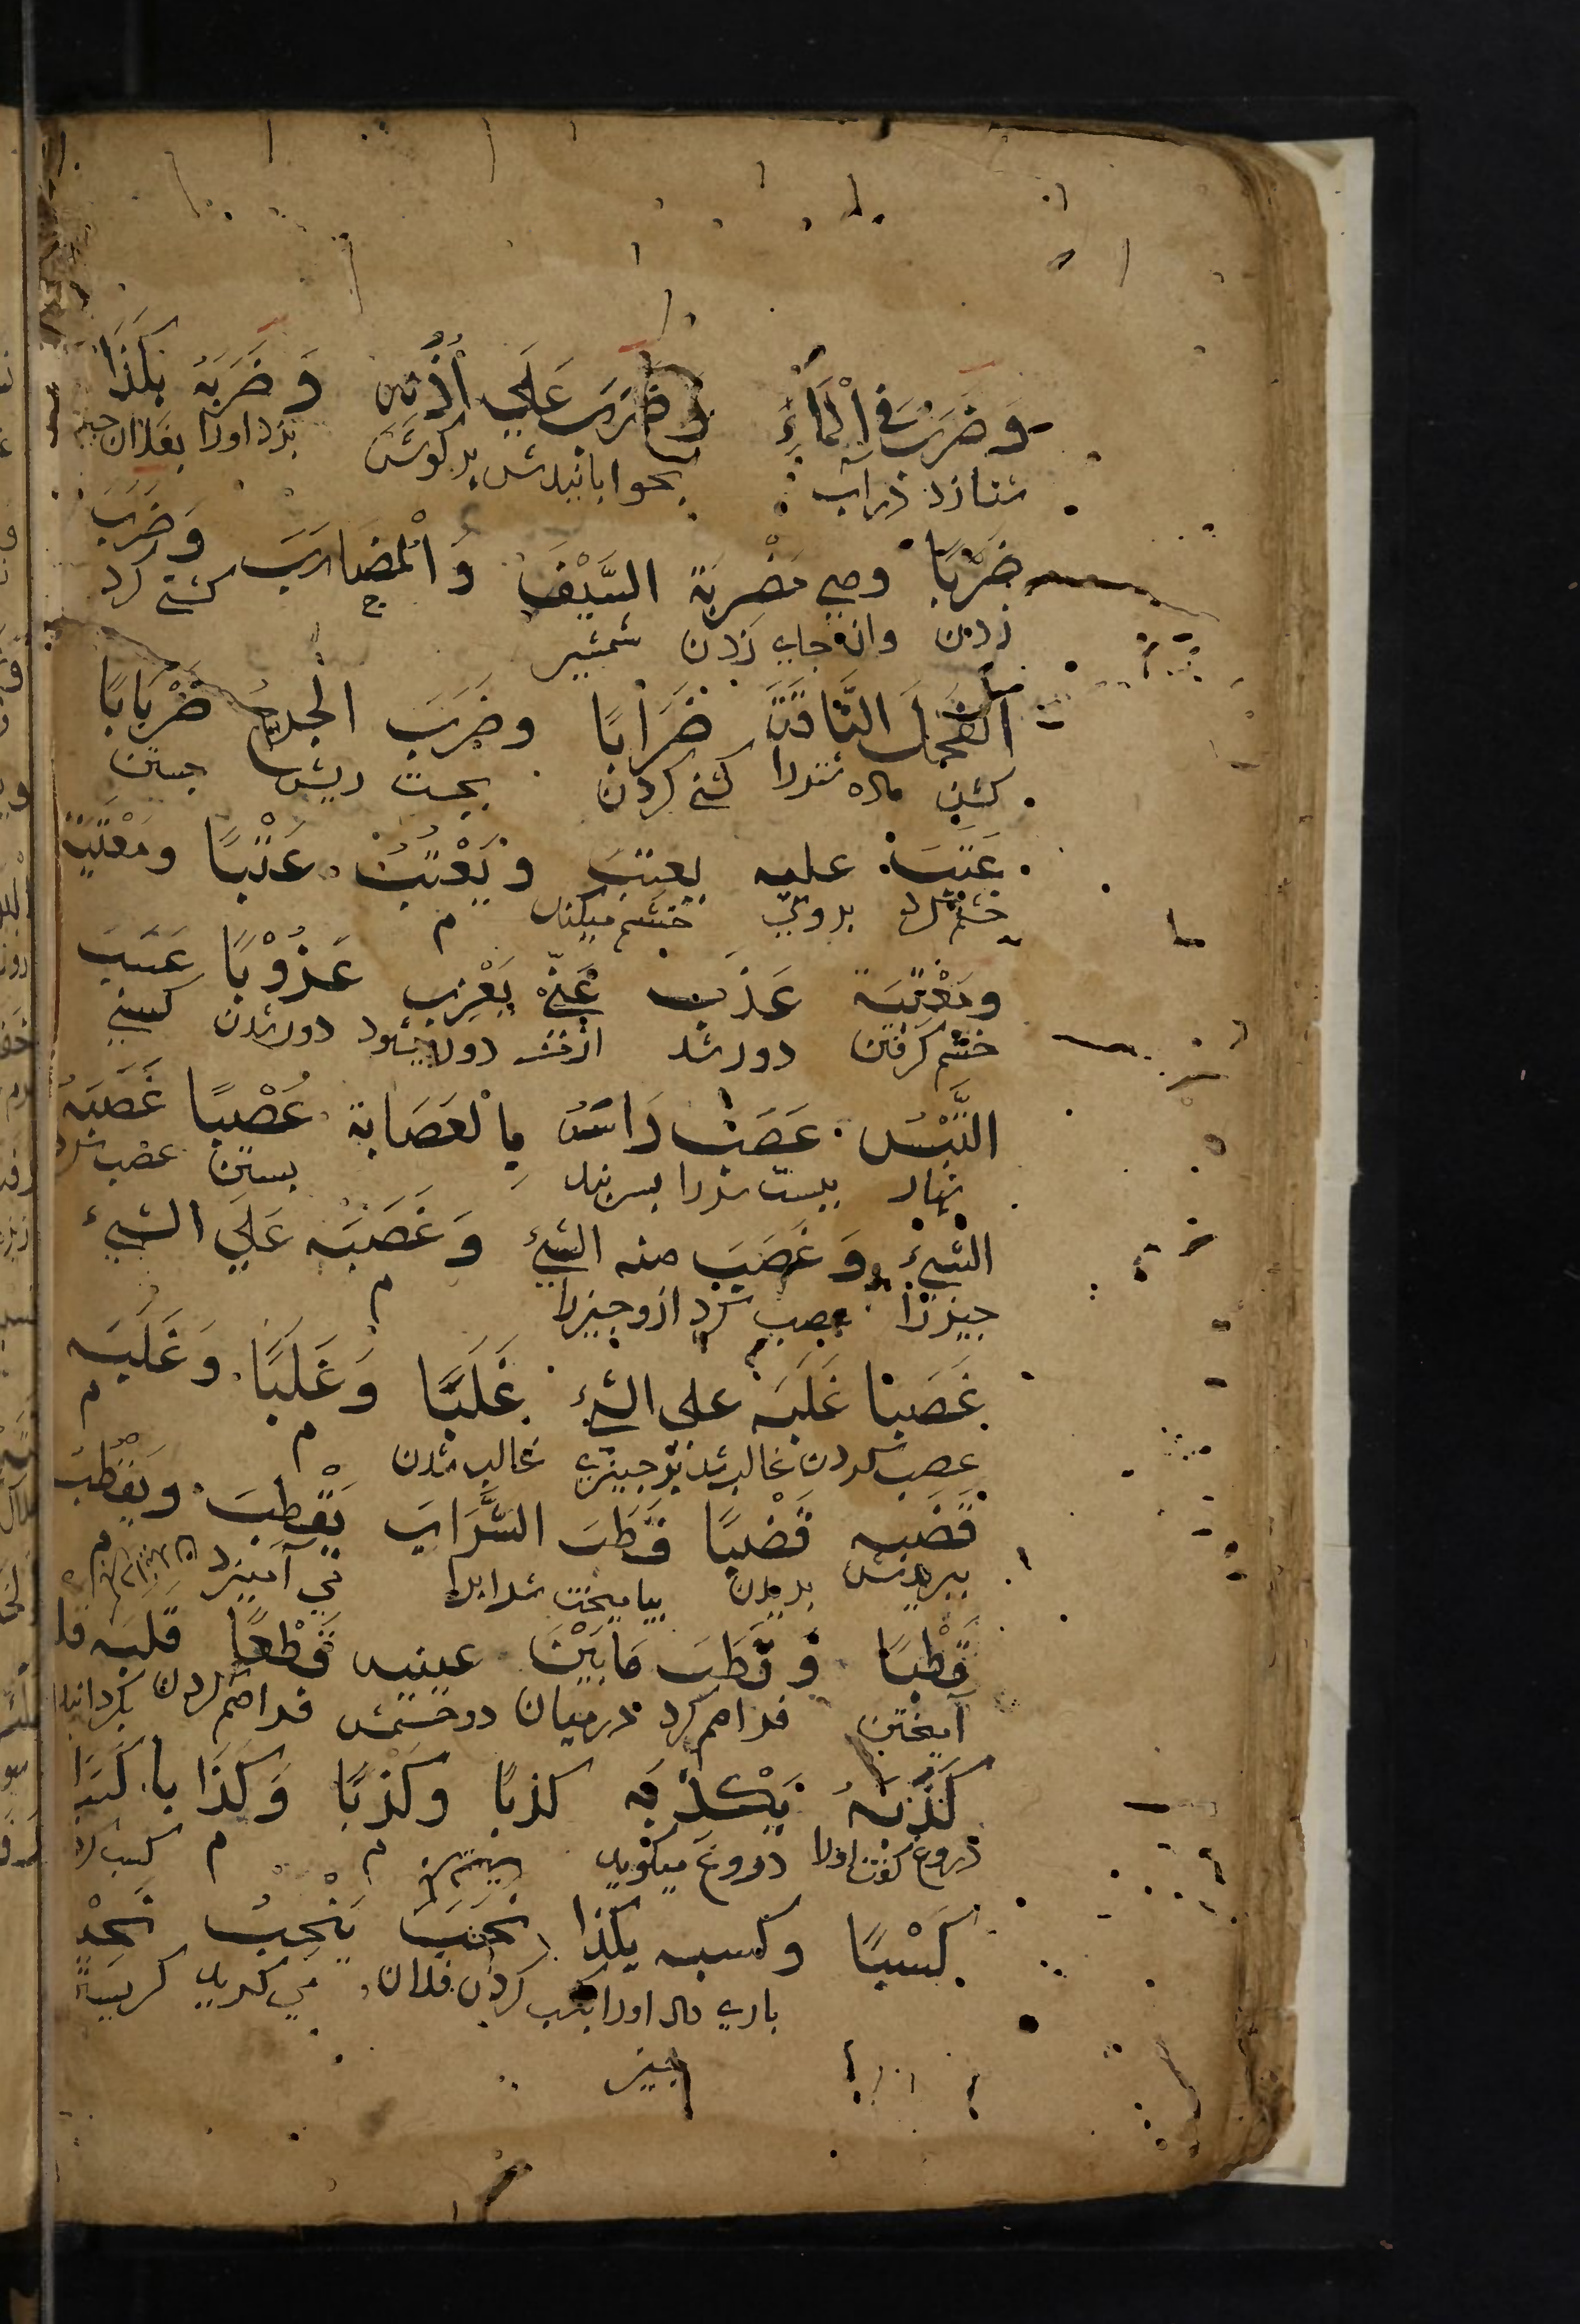 وَضَرَبَ فِي الْمَاءِ وَضَرَبَ عَلَي أُذُنِه وَضَرَبَهُ بِكَذَا
شنا زد در آب بخوابانیدش بر گوشش بزد اورا بفلان چیز
ضَرْبًا وهي مَضْرِبَة السَّيْفِ وَالْمَضَارِبَ وَضَرَبَ
زدن وان جاي زدن شمشیر ج كشني كرد
الْفَحْلُ النَّاقَةَ ضِرَابًا وضَرَبَ الْجُرْحُ ضَرَبَانًا
كشن ماده شتررا كشني كردن بجست ریش جستن
عَتَبَ عليه يعتِبُ وَيَعْتُبُ عَتْبًا ومَعْتَبَةً
خشم بروي خشم میكند م
ومَعْتِبَة عَزَبَ عَنْهُ يَعْزِبُ عُزُوْبًا عَسَبَ
خشم گرفتن دور شد دور میشود دور شدن
التَّيْسُ عَصَبَ رَاسَهُ بِالْعَصَابَةِ عَصْبًا غَصَبَهُ
ببست سررا بسربند بستن غصب كرد
الشيءَ وَغَصَبَ منه الشيءَ وَغَصَبَه عَلَي الشيءِ
چیزرا غصب كرد ازو چیزرا م
غَصَبًا غَلَبَه على الشيءِ غَلَبًا وَغَلَبًا وَغَلَبَه
غصب كردن غالب شد بر چیزي غالب شدن م م
قَضَبه قَضْبًا قَطَبَ الشَّرَابَ يَقْطِبَ ويَقْطُبُ
ببریدش بریدن بیامیخت شرابرا مي آمیزد م
قَطْبًا وَقَطَبَ مَا بَيْنَ عينيه قَطْعًا قَلَبَه قلـ
آمیختن فراهم كرد درمیان دو چشمش فراهم كردن بگردانید
كَذَبَهُ يَكْذِبُه كذبًا وكَذْبًا وَكَذَا با كَسَبَ
دروغ گفت اورا دروغ میگوید م م كسب كرد
كَسْبًا وكسبه بكذا نَحَبَ يَنْحِبُ نَحْـ
یاري داد اورا بكسب كردن فلان مي گرید
چیز